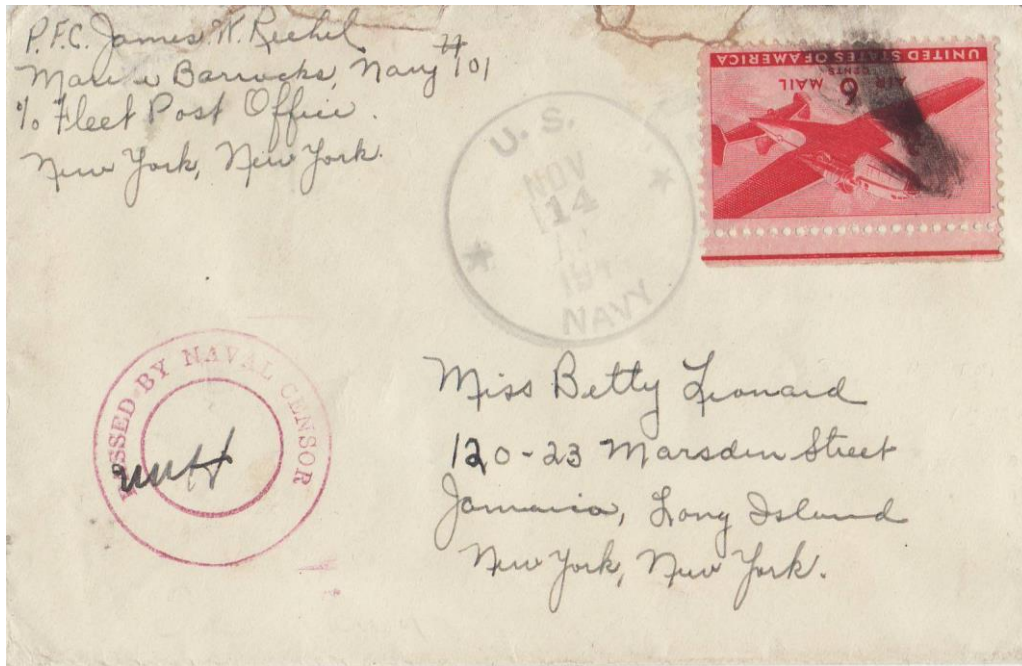 P.F.C. James W. Riehel
Marine Barracks, Navy #101
℅ Fleet Post Office.
New York, New York.
UNITED STATES OF AMERICA
AIR 6 CENTS MAIL
U. S.
NOV
14
194
NAVY
PASSED BY NAVAL CENSOR
Miss Betty Leonard
120-23 Marsden Street
Jamaica, Long Island
New York, New York.